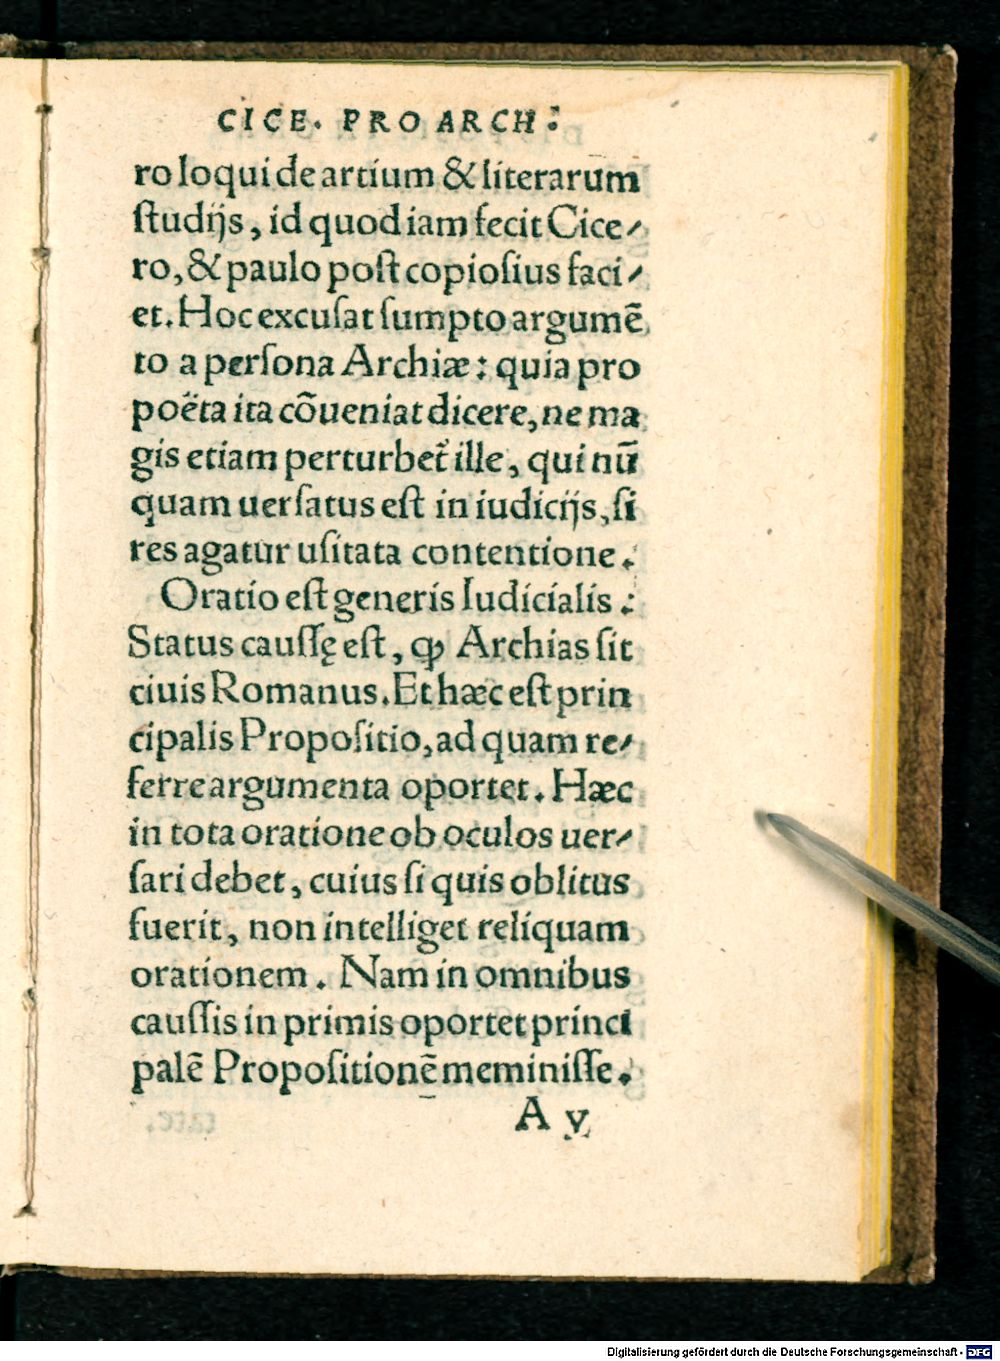 CICE. PRO ARCH:
ro loqui de artium & literarum
ſtudijs, id quod iam fecit Cice/
ro, & paulo poſt copioſius faci/
et. Hoc excuſat ſumpto argumē
to a perſona Archiæ: quia pro
poëta ita cōueniat dicere, ne ma
gis etiam perturbet᷑ ille, qui nū
quam uerſatus eſt in iudicijs, ſi
res agatur uſitata contentione.
Oratio eſt generis Iudicialis:
Status cauſſę eſt, ꝙ Archias ſit
ciuis Romanus. Et hæc eſt prin
cipalis Propoſitio, ad quam re/
ferre argumenta oportet. Hæc
in tota oratione ob oculos uer/
ſari debet, cuius ſi quis oblitus
fuerit, non intelliget reliquam
orationem. Nam in omnibus
cauſſis in primis oportet princi
palē Propoſitionē meminiſſe.
A v
Digitalisierung gefördert durch die Deutsche Forschungsgemeinschaft - DFG